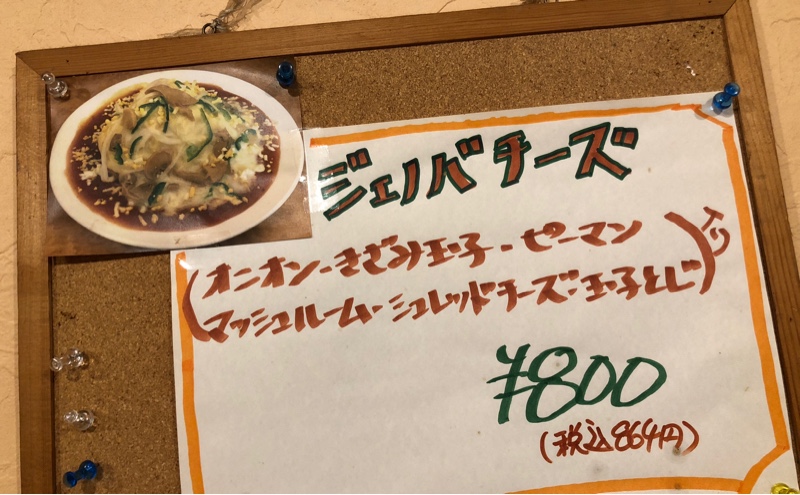 ジェノバチーズ
(オニオン・きざみ玉子・ピーマン
マッシュルーム・シュレッドチーズ・玉子とじ)入り
¥800
(税込864円)